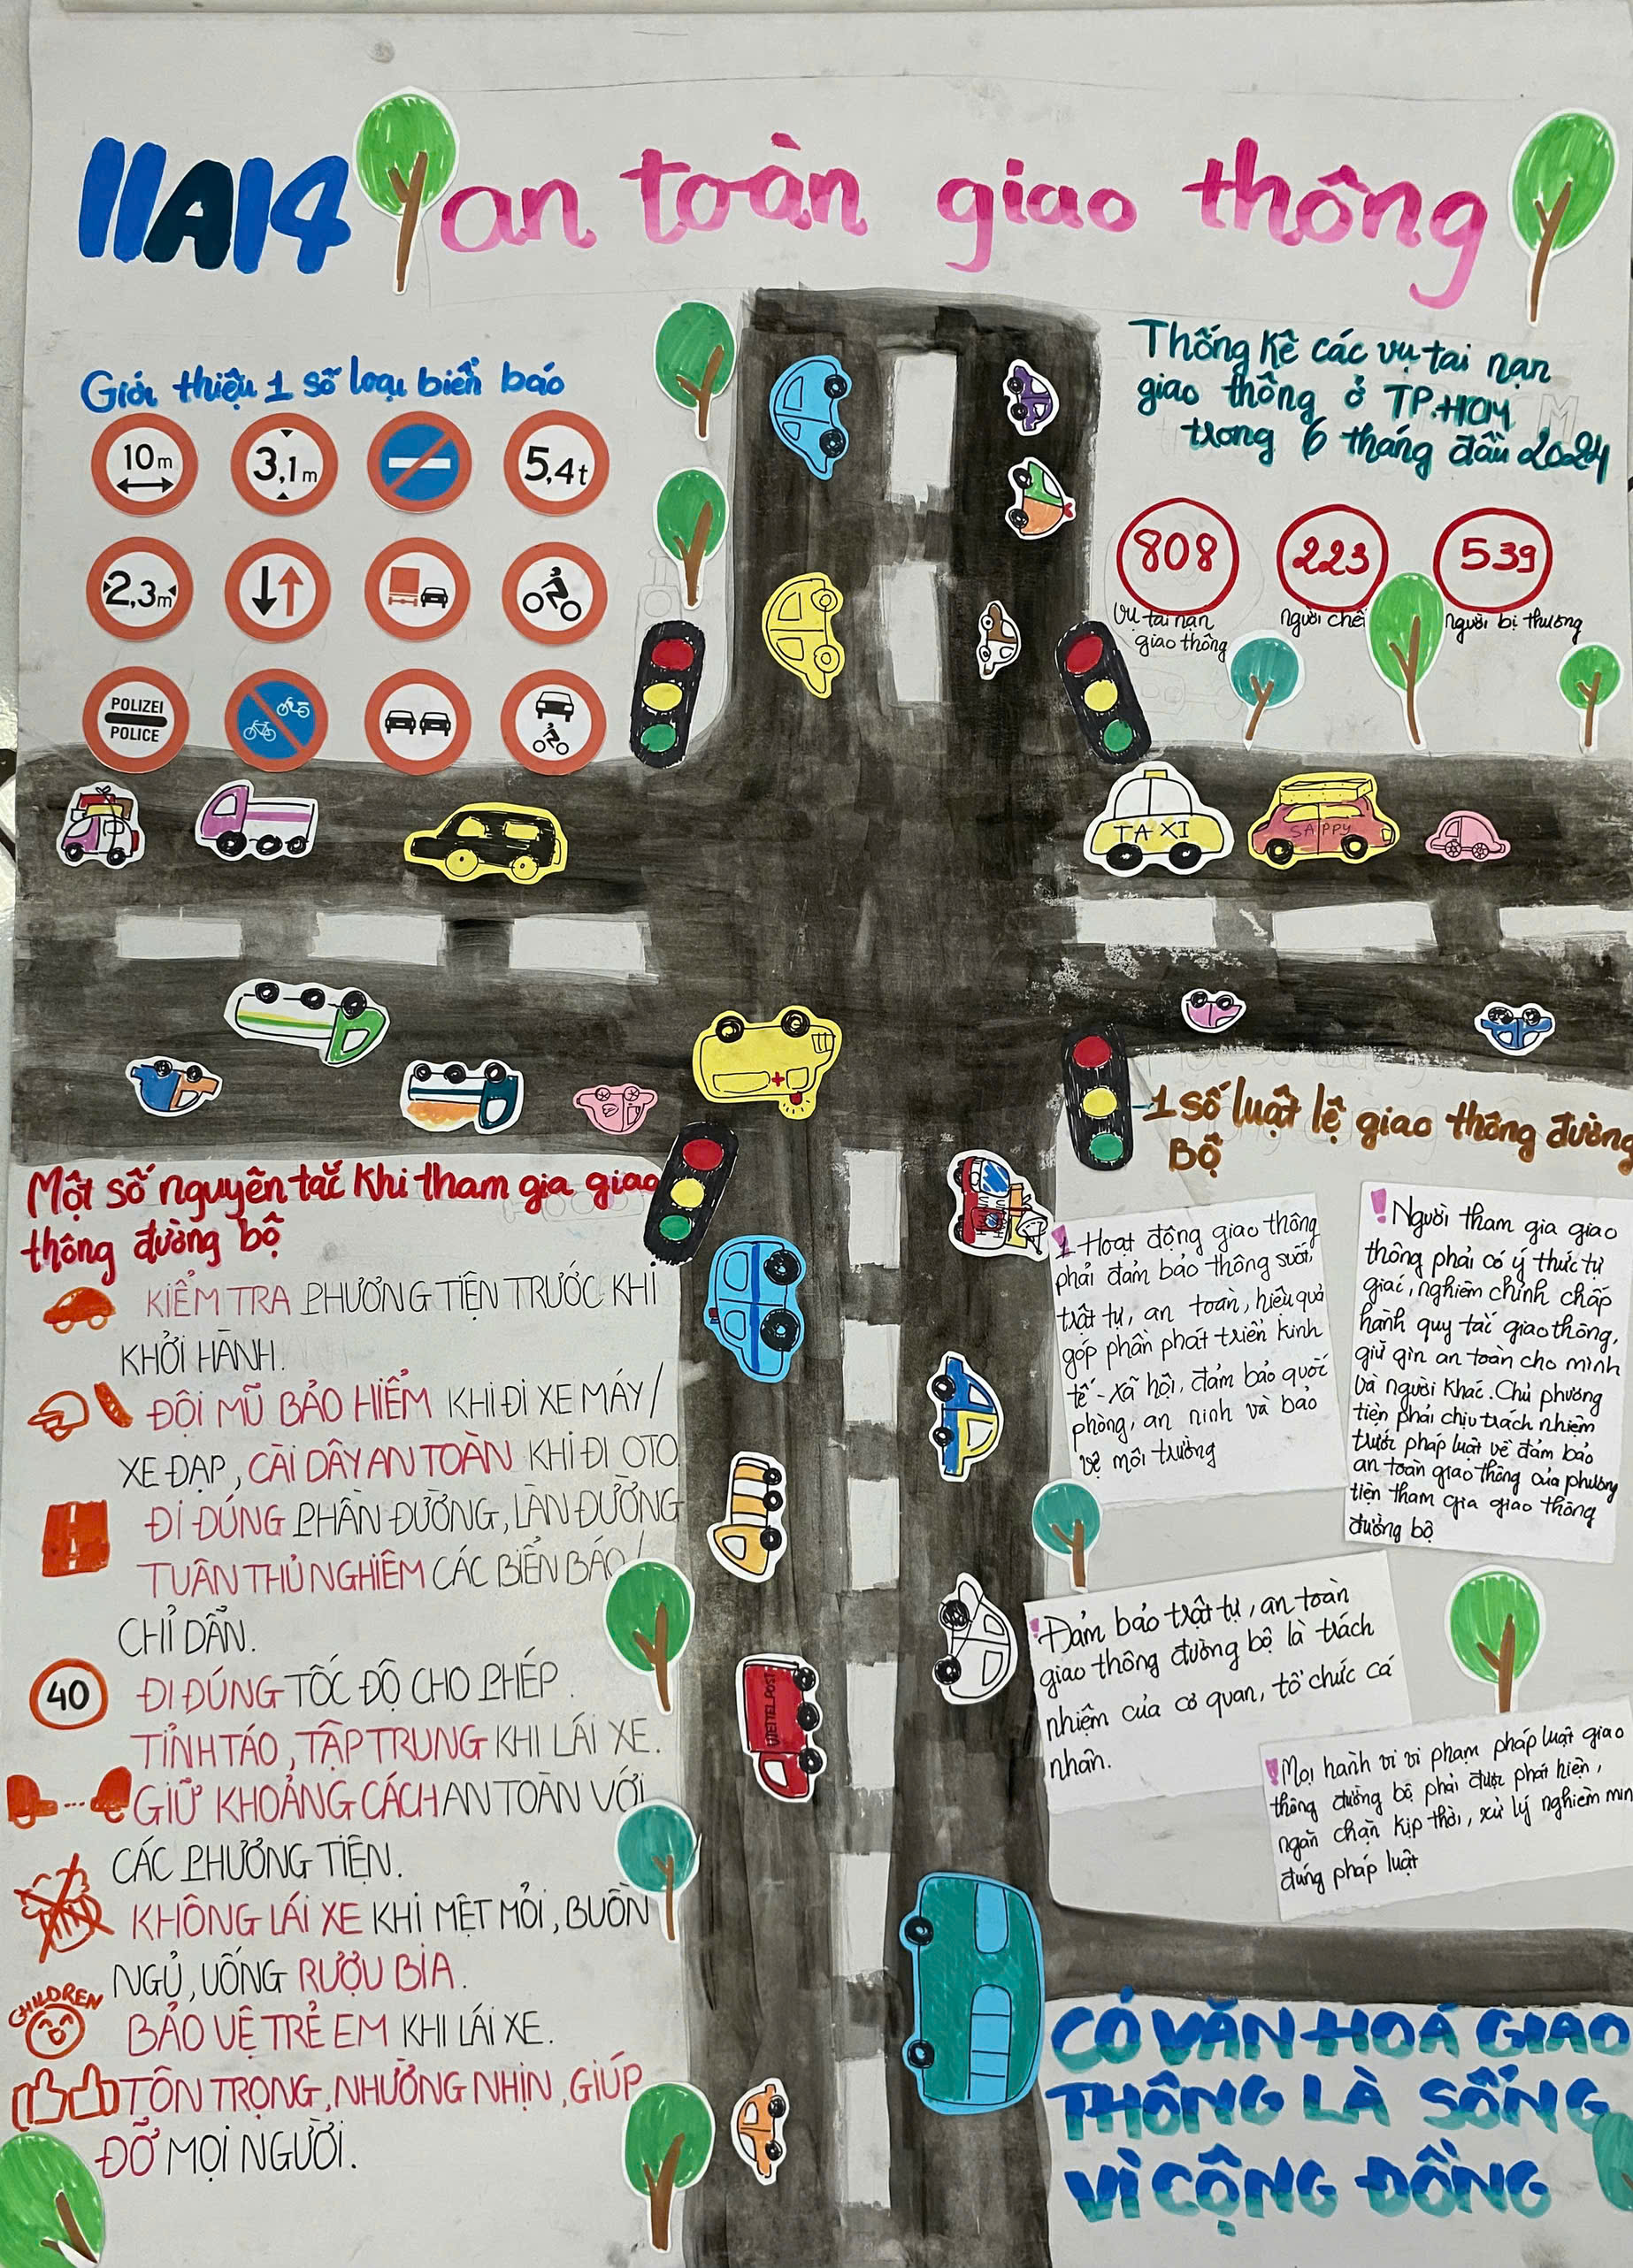 11A14 an toàn giao thông
Giới thiệu 1 số loại biển báo
10m
3,1m
5,4t
2,3m
POLIZEI
POLICE
Thống kê các vụ tai nạn
giao thông ở TP.HCM
trong 6 tháng đầu 2024
808
223
539
vụ tai nạn
giao thông
người chế
người bị thương
TAXI
SAPPY
Một số nguyên tắc khi tham gia giao
thông đường bộ
KIỂM TRA PHƯƠNG TIỆN TRƯỚC KHI
KHỞI HÀNH.
ĐỘI MŨ BẢO HIỂM KHI ĐI XE MÁY/
XE ĐẠP, CÀI DÂY AN TOÀN KHI ĐI OTO
ĐI ĐÚNG PHẦN ĐƯỜNG, LÀN ĐƯỜNG
TUÂN THỦ NGHIÊM CÁC BIỂN BÁO/
CHỈ DẨN.
40
ĐI ĐÚNG TỐC ĐỘ CHO PHÉP.
TỈNH TÁO, TẬP TRUNG KHI LÁI XE.
GIỮ KHOẢNG CÁCH AN TOÀN VỚI
CÁC PHƯƠNG TIỆN.
KHÔNG LÁI XE KHI MỆT MỎI, BUỒN
NGỦ, UỐNG RƯỢU BIA.
CHILDREN
BẢO VỆ TRẺ EM KHI LÁI XE.
TÔN TRỌNG, NHƯỜNG NHỊN, GIÚP
ĐỠ MỌI NGƯỜI.
VIETTEL POST
1 số luật lệ giao thông đường
Bộ
! Hoạt động giao thông
phải đảm bảo thông suốt,
trật tự, an toàn, hiệu quả
góp phần phát triển kinh
tế - xã hội, đảm bảo quốc
phòng, an ninh và bảo
vệ môi trường
! Người tham gia giao
thông phải có ý thức tự
giác, nghiêm chỉnh chấp
hành quy tắc giao thông,
giữ gìn an toàn cho mình
và người khác. Chủ phương
tiện phải chịu trách nhiệm
trước pháp luật về đảm bảo
an toàn giao thông của phương
tiện tham gia giao thông
đường bộ
! Đảm bảo trật tự, an toàn
giao thông đường bộ là trách
nhiệm của cơ quan, tổ chức cá
nhân.
! Mọi hành vi vi phạm pháp luật giao
thông đường bộ phải được phát hiện,
ngăn chặn kịp thời, xử lý nghiêm min
đúng pháp luật
CÓ VĂN HOÁ GIAO
THÔNG LÀ SỐNG
VÌ CỘNG ĐỒNG